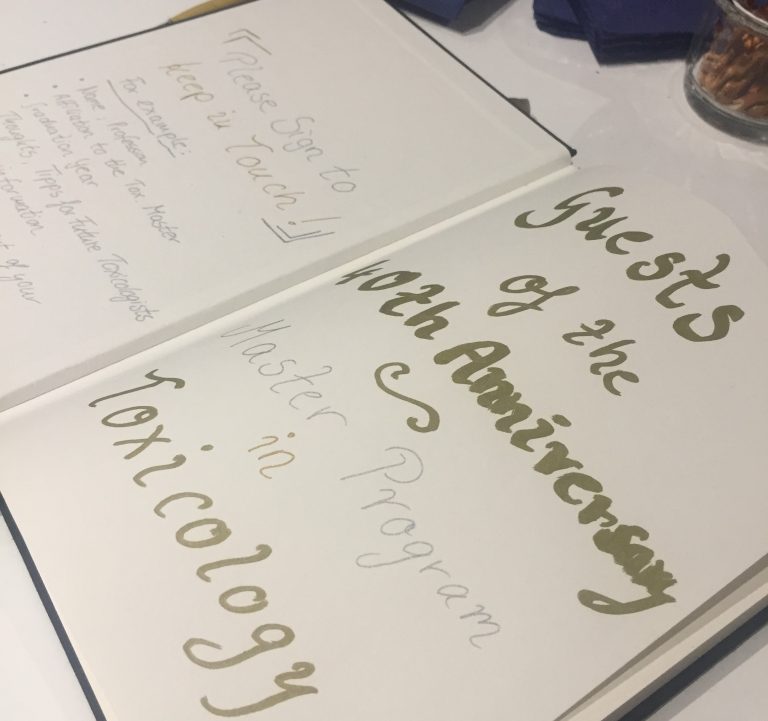 "Please Sign to
keep in Touch!"
For example:
• Name, Profession
• Affiliation to the Tox. Master
• Graduation Year
Thoughts, Tipps for Future Toxicologists
information
of your
Guests
of the
40th Anniversary
Master Program
in
Toxicology